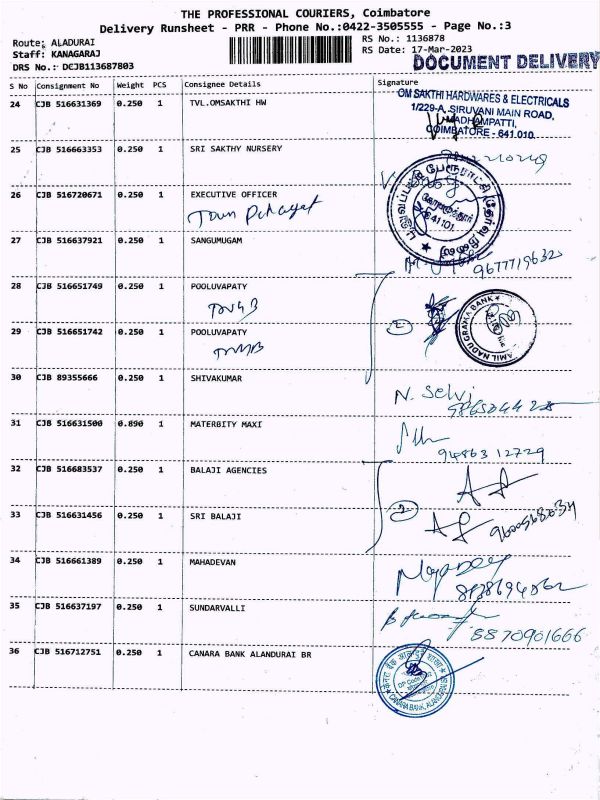 THE PROFESSIONAL COURIERS, Coimbatore
Delivery Runsheet - PRR - Phone No.:0422-3505555 - Page No.:3
Route: ALADURAI
RS No.: 1136878
Staff: KANAGARAJ
RS Date: 17-Mar-2023
DRS No.: DCJB113687803
DOCUMENT DELIVERY
S No Consignment No Weight PCS Consignee Details Signature
24 CJB 516631369 0.250 1 TVL.OMSAKTHI HW
OM SAKTHI HARDWARES & ELECTRICALS
1/229-A, SIRUVANI MAIN ROAD,
MADHAMPATTI,
COIMBATORE - 641 010.
25 CJB 516663353 0.250 1 SRI SAKTHY NURSERY
26 CJB 516720671 0.250 1 EXECUTIVE OFFICER
Town
641101
27 CJB 516637921 0.250 1 SANGUMUGAM
28 CJB 516651749 0.250 1 POOLUVAPATY
TNGB
2
TAMIL NADU GRAMA BANK
29 CJB 516651742 0.250 1 POOLUVAPATY
30 CJB 89355666 0.250 1 SHIVAKUMAR
N. Selvi
31 CJB 516631500 0.890 1 MATERBITY MAXI
94863 12729
32 CJB 516683537 0.250 1 BALAJI AGENCIES
2
33 CJB 516631456 0.250 1 SRI BALAJI
34 CJB 516661389 0.250 1 MAHADEVAN
35 CJB 516637197 0.250 1 SUNDARVALLI
8870901666
36 CJB 516712751 0.250 1 CANARA BANK ALANDURAI BR
CANARA BANK, ALANDURAI